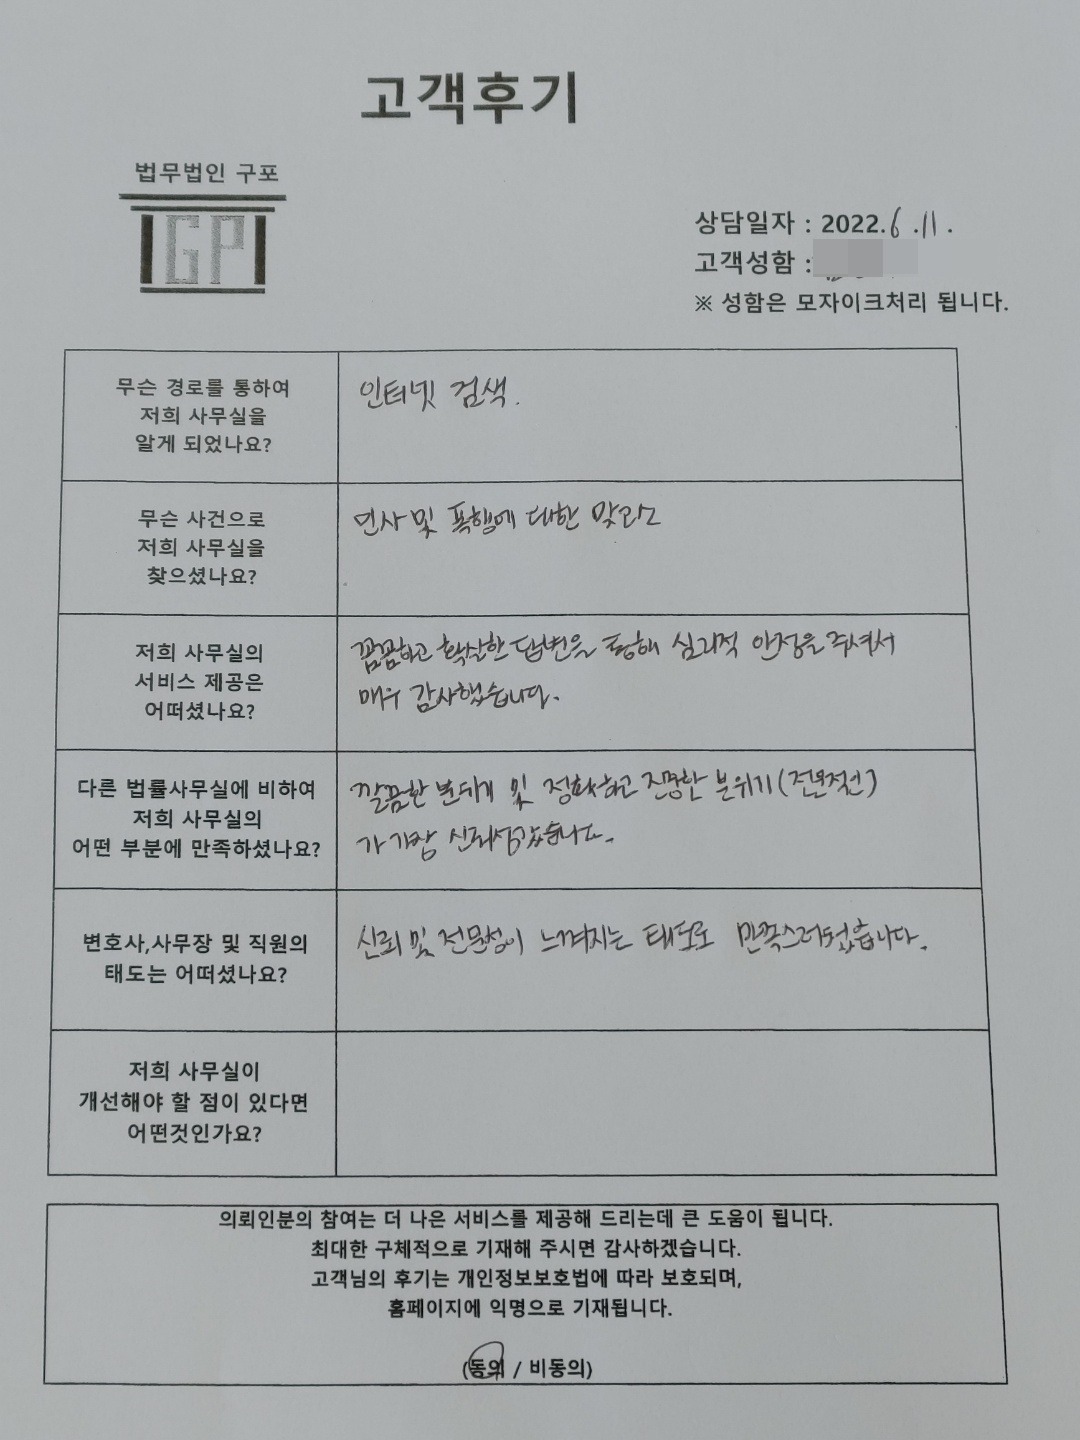 고객후기
법무법인 구포
GP
상담일자 : 2022. 6 . 11 .
고객성함 :
※ 성함은 모자이크처리 됩니다.
무슨 경로를 통하여
저희 사무실을
알게 되었나요?
인터넷 검색.
무슨 사건으로
저희 사무실을
찾으셨나요?
민사 및 폭행에 대한 맞고소
저희 사무실의
서비스 제공은
어떠셨나요?
꼼꼼하고 확실한 답변을 통해 심리적 안정을 주셔서
매우 감사했습니다.
다른 법률사무실에 비하여
저희 사무실의
어떤 부분에 만족하셨나요?
깔끔한 분위기 및 정확하고 진중한 분위기(전문적인)
가 가장 신뢰성 갔습니다.
변호사,사무장 및 직원의
태도는 어떠셨나요?
신뢰 및 전문성이 느껴지는 태도로 만족스러웠습니다.
저희 사무실이
개선해야 할 점이 있다면
어떤것인가요?
의뢰인분의 참여는 더 나은 서비스를 제공해 드리는데 큰 도움이 됩니다.
최대한 구체적으로 기재해 주시면 감사하겠습니다.
고객님의 후기는 개인정보보호법에 따라 보호되며,
홈페이지에 익명으로 기재됩니다.
(동의 / 비동의)